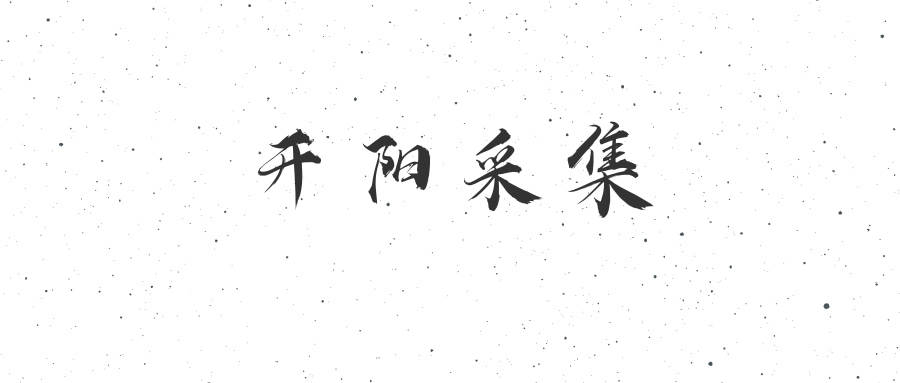 开阳采集